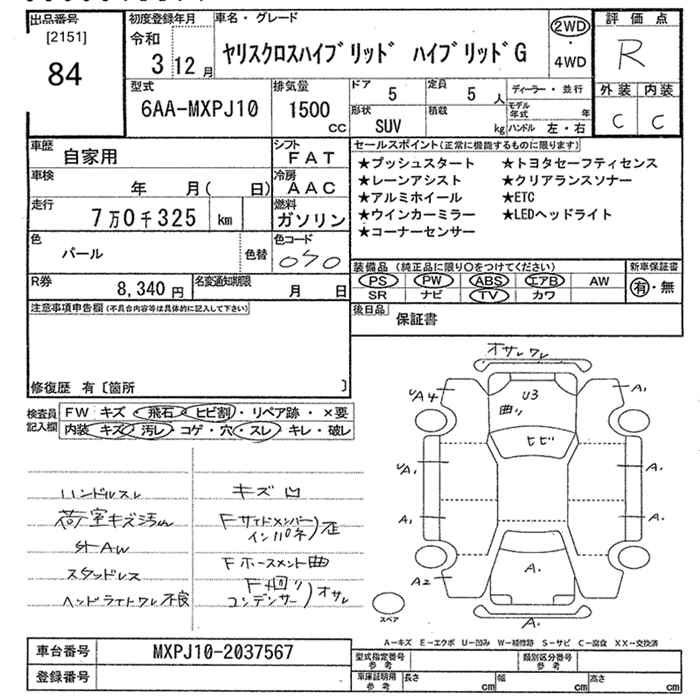 出品番号
[2151]
84
初度登録年月
令和
3 12 月
車名・グレード
ヤリスクロスハイブリッド ハイブリッドG
2WD
・
4WD
評価点
R
外装 内装
C C
型式
6AA-MXPJ10
排気量
1500
CC
ドア
5
定員
5 人
形状
SUV
積載
kg
ディーラー・並行
モデル年式 年
ハンドル 左・右
車歴
自家用
シフト
FAT
車検
年 月( 日)
冷房
AAC
走行
7万0千325 km
燃料
ガソリン
色
パール
色替
色コード
070
R券
8,340 円
名変通知期限
月 日
セールスポイント(正常に機能するものに限ります)
★プッシュスタート ★トヨタセーフティセンス
★レーンアシスト ★クリアランスソナー
★アルミホイール ★ETC
★ウインカーミラー ★LEDヘッドライト
★コーナーセンサー
装備品 (純正品に限り○をつけてください)
PS PW ABS エアB AW
SR ナビ TV カワ
新車保証書
有・無
後日品
保証書
注意事項申告欄(不具合内容等は具体的に記入して下さい)
修復歴 有〔箇所 〕
検査員
記入欄
FW キズ・飛石・ヒビ割・リペア跡・×要
内装 キズ・汚レ・コゲ・穴・スレ・キレ・破レ
ハンドルスレ
荷室キズ汚れ
社外AW
スタッドレス
ヘッドライトワレ不良
キズ凹
Fサイドメンバー
インパネ)歪
Fホースメント曲
F廻り
コンデンサー)オサレ
オサレワレ
UA4
U3
曲り
A1
ヒビ
UA1
A.
A1
A.
A2
A.
A.
スペア
A-キズ E-エクボ U-凹み W-補修跡 S-サビ C-腐食 XX-交換済
車台番号
MXPJ10-2037567
登録番号
型式指定番号
参考
類別区分番号
参考
車庫証明用
参考
長さ cm
幅 cm
高さ cm